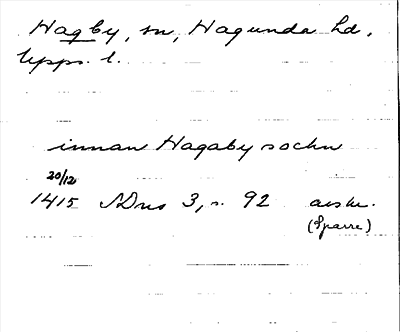 Hagby, sn, Hagunda hd,
Upps. l.
innan Hagaby sochn
20/12
1415 SDns 3, s. 92 avskr.
(Sparre)